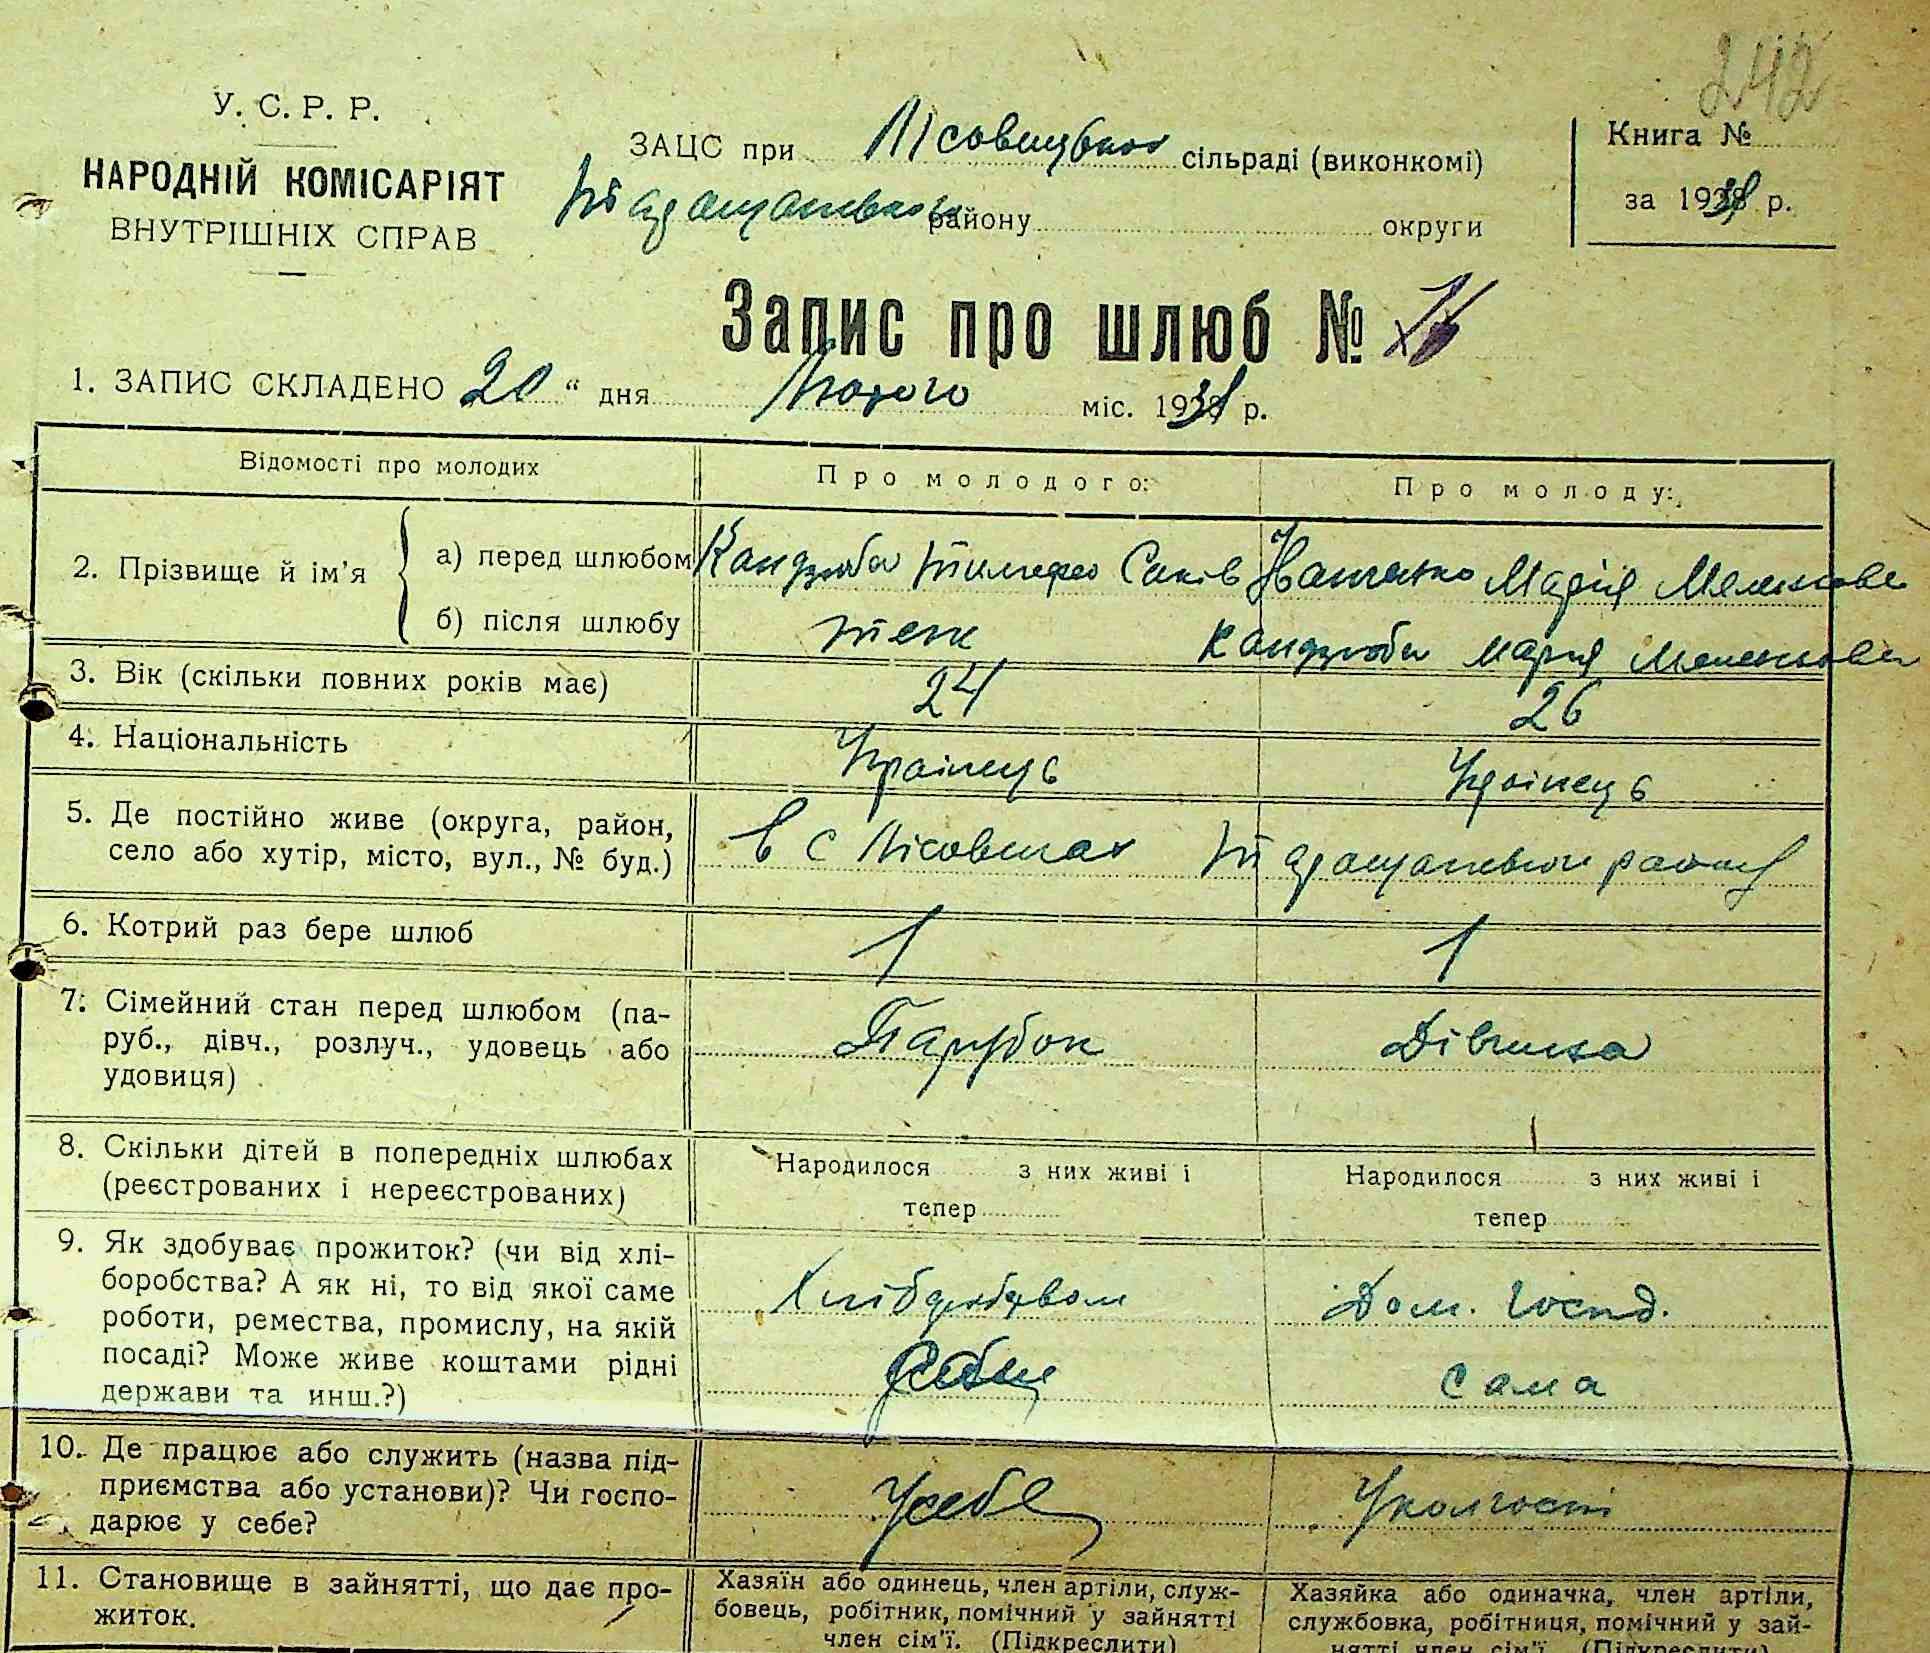 242
У. С. Р. Р.
НАРОДНІЙ КОМІСАРІЯТ
ВНУТРІШНІХ СПРАВ
ЗАЦС при сільраді (виконкомі)
району округи
Книга №
за 1931 р.
Запис про шлюб №
1. ЗАПИС СКЛАДЕНО 20 “ дня Лютого міс. 1931 р.
Відомості про молодих
Про молодого:
Про молоду:
2. Прізвище й ім’я
а) перед шлюбом Кандзюба Саків Марія
б) після шлюбу Кандзюба Мария
3. Вік (скільки повних років має) 24 26
4. Національність Українець
5. Де постійно живе (округа, район,
село або хутір, місто, вул., № буд.) в с Лісовичах району
6. Котрий раз бере шлюб 1 1
7. Сімейний стан перед шлюбом (па-
руб., дівч., розлуч., удовець або Парубок Дівчина
удовиця)
8. Скільки дітей в попередніх шлюбах
(реєстрованих і нереєстрованих)
Народилося з них живі і
тепер
Народилося з них живі і
тепер
9. Як здобуває прожиток? (чи від хлі-
боробства? А як ні, то від якої саме
роботи, ремества, промислу, на якій Дом. Госпд.
посаді? Може живе коштами рідні
держави та инш.?) Сама
10. Де працює або служить (назва під-
приємства або установи)? Чи госпо- Усебе
дарює у себе?
11. Становище в зайнятті, що дає про-
житок.
Хазяїн або одинець, член артіли, служ-
бовець, робітник, помічний у зайнятті
член сім’ї. (Підкреслити)
Хазяйка або одиначка, член артіли,
службовка, робітниця, помічний у зай-
нятті член сім’ї. (Підкреслити)